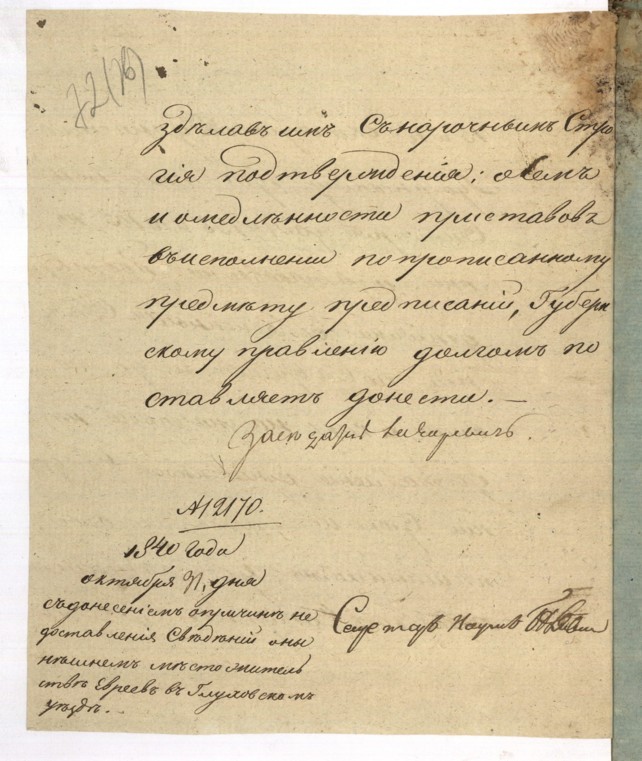 72(76)
здѣлавъ имъ съ нарочнымъ Стро
гія подтвержденія; о чемъ
и омедлѣнности приставовъ
въисполненіи попрописанному
предмѣту предписаній, Губерн
скому правленію долгомъ по
ставляетъ донести. —
№ 12170.
1840 года
октября 31, дня
съдонесеніемъ опричинѣ не
доставленія Свѣдѣній оны
нѣшнемъ мѣстожитель
ствѣ Евреевъ въ Глуховскомъ
уѣздѣ.
Секретарь